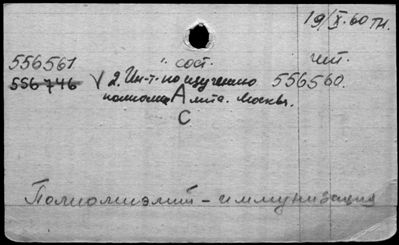 19/X.60 тн.
556561 " сост. чит.
556746 V 2. Ин-т. по изучению 556560.
полиомиелита. Москвы.
А
С
Полиомиэлит - иммунизация